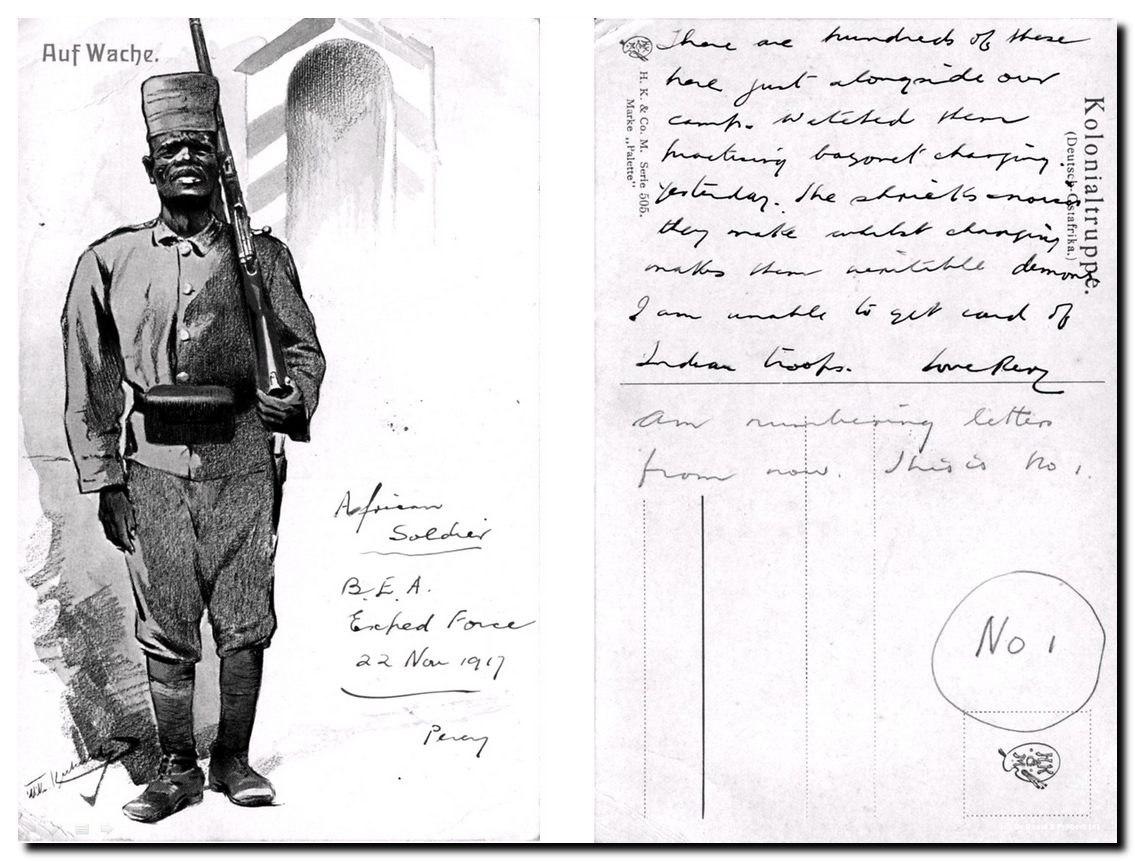 Auf Wache.
African
Soldier
B.E.A.
Exped Force
22 Nov 1917
Percy
There are hundreds of these
here just alongside our
camp. Watched them
practising bayonet charging.
yesterday. The shrieks & noise
they make whilst charging
makes them veritible demons
I am unable to get card of
Indian troops. Love Percy
H. K. & Co. M. Serie 505.
Marke „Palette"
Kolonialtruppe.
(Deutsch-Ostafrika.)
am numbering letters
from now. This is No 1.
No 1
HK
M